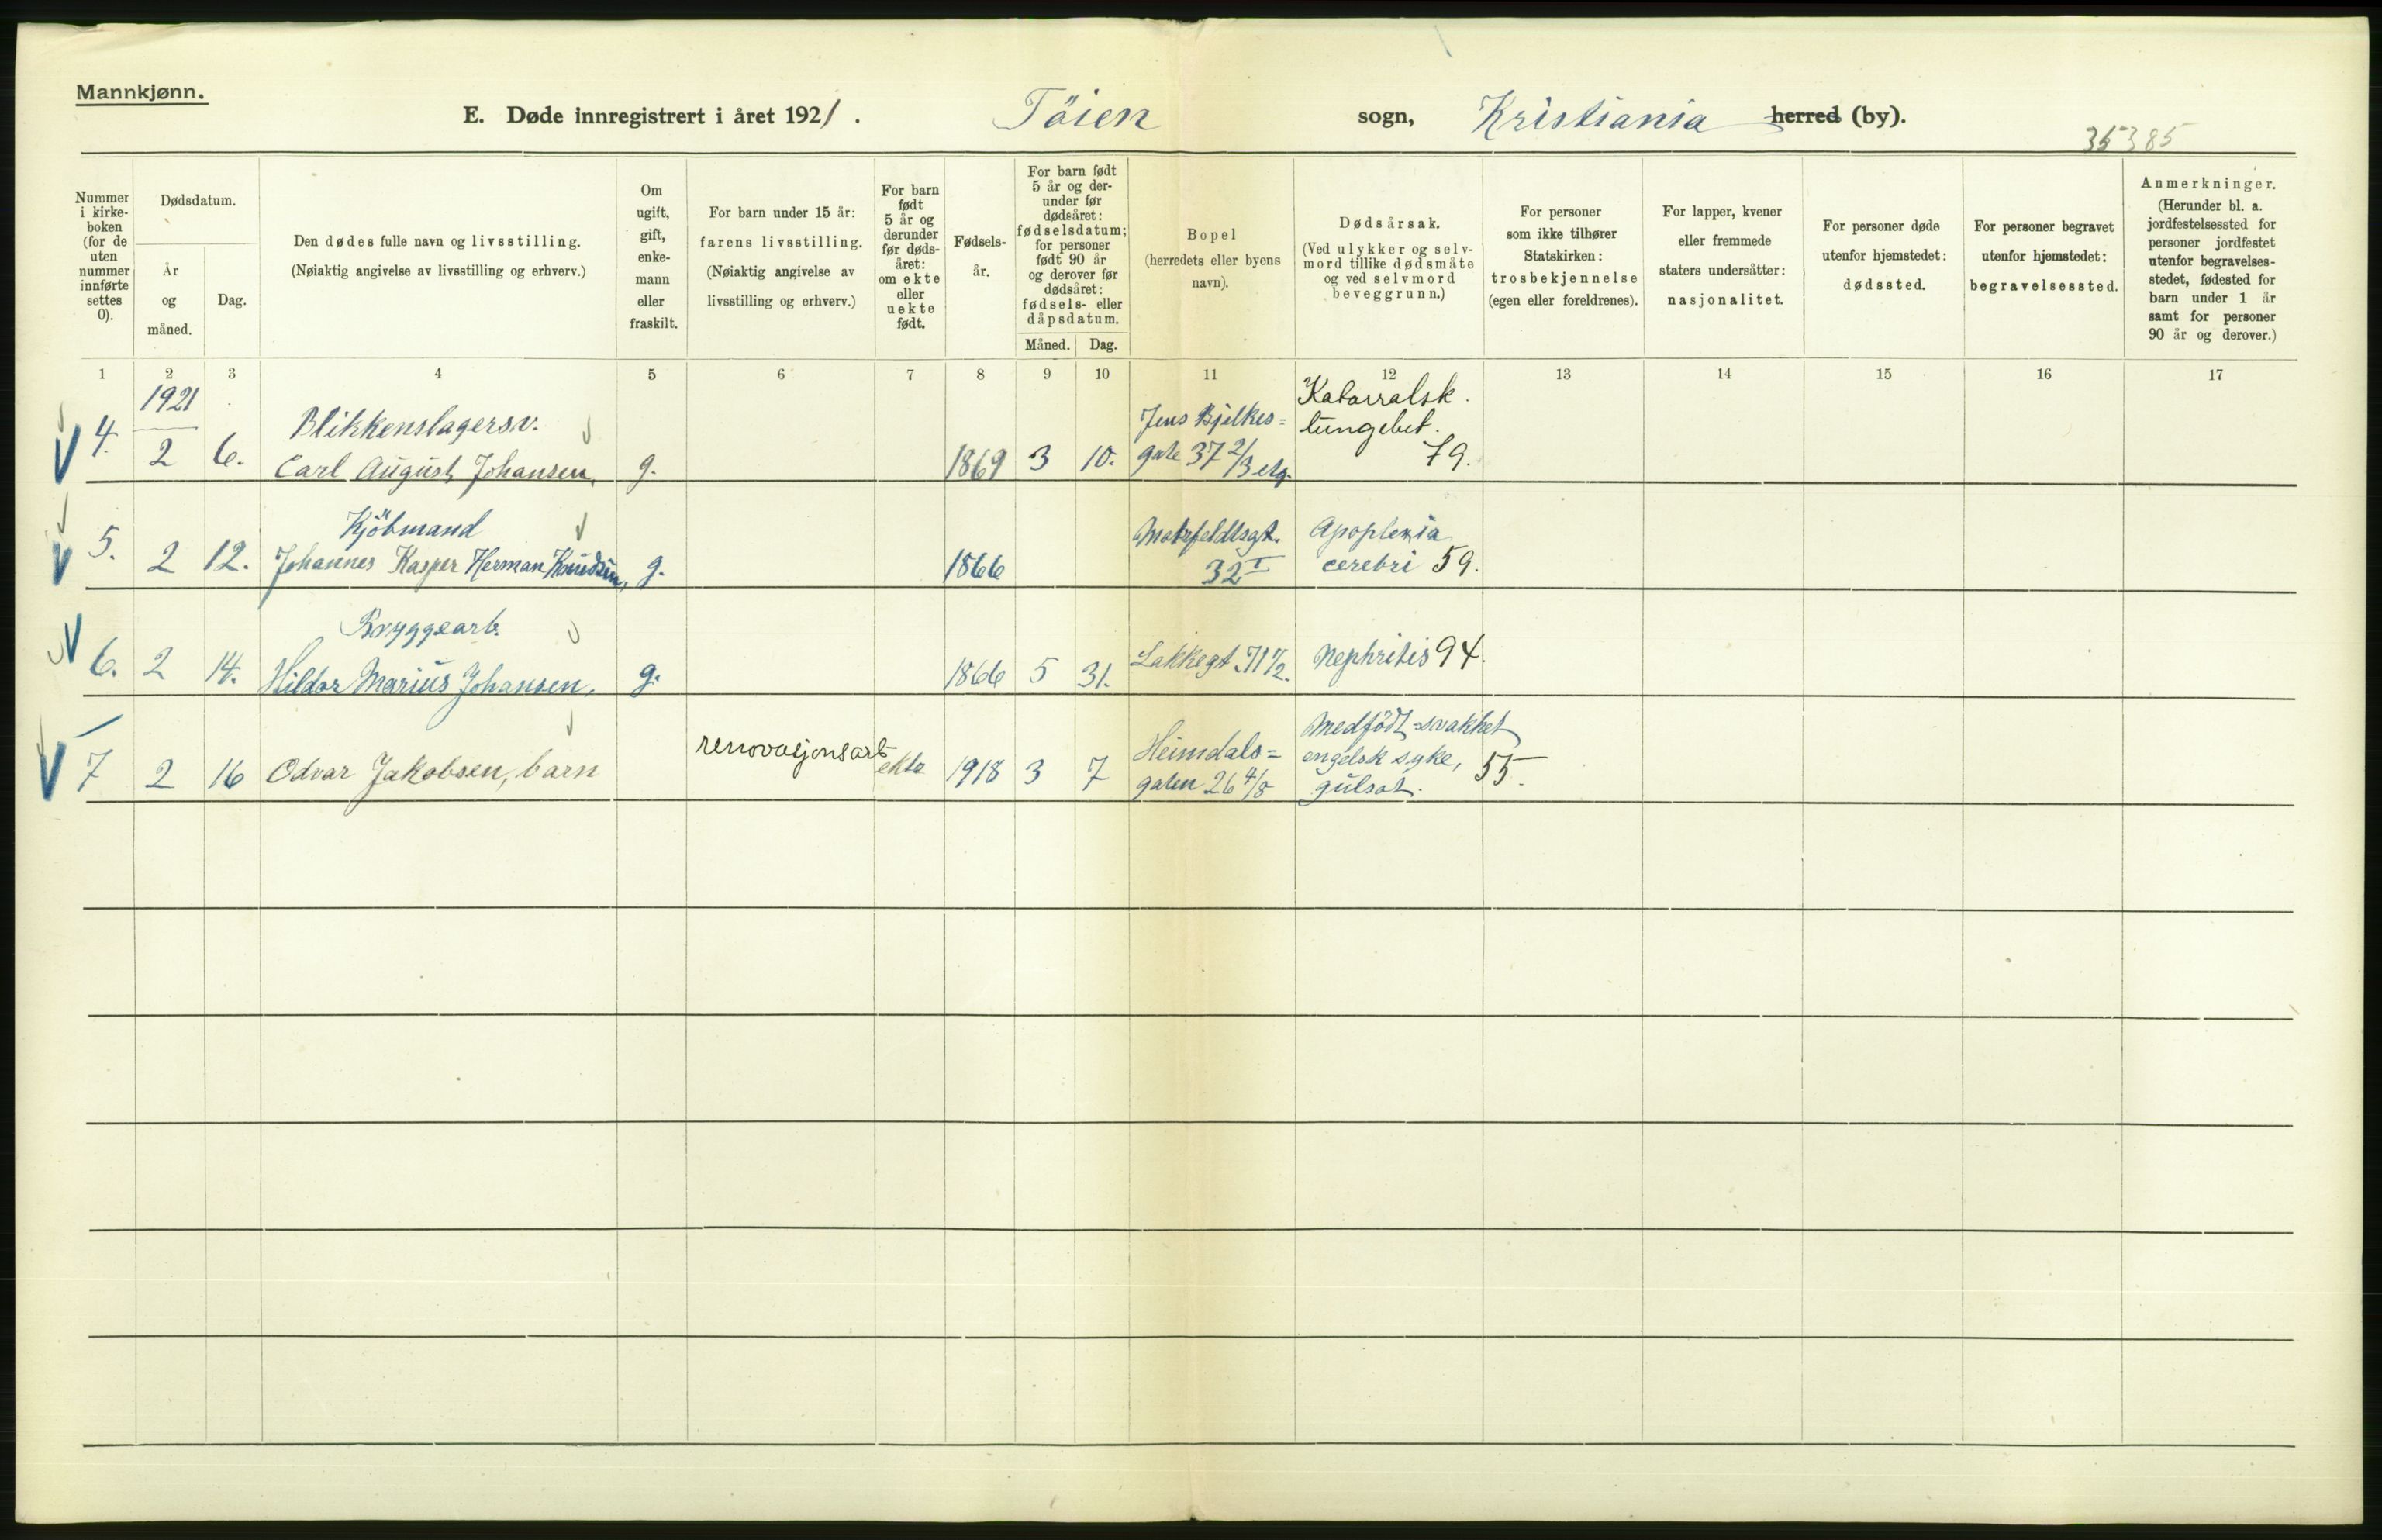 Mannkjønn.
E. Døde innregistrert i året 1921.
Töien sogn, Kristiania herred (by).
35385
Nummer i kirke-boken (for de uten nummer innførte settes 0).
Dødsdatum.
År og måned.
Dag.
Den dødes fulle navn og livsstilling.
(Nøiaktig angivelse av livsstilling og erhverv.)
Om ugift, gift, enke-mann eller fraskilt.
For barn under 15 år:
farens livsstilling.
(Nøiaktig angivelse av livsstilling og erhverv.)
For barn født 5 år og derunder før døds-året: om ekte eller uekte født.
Fødsels-år.
For barn født 5 år og der-under før dødsåret: fødselsdatum; for personer født 90 år og derover før dødsåret: fødsels- eller dåpsdatum.
Måned.
Dag.
Bopel
(herredets eller byens navn).
Dødsårsak.
(Ved ulykker og selv-mord tillike dødsmåte og ved selvmord beveggrunn.)
For personer som ikke tilhører Statskirken:
trosbekjennelse
(egen eller foreldrenes).
For lapper, kvener eller fremmede staters undersåtter:
nasjonalitet.
For personer døde utenfor hjemstedet:
dødssted.
For personer begravet utenfor hjemstedet:
begravelsessted.
Anmerkninger.
(Herunder bl. a. jordfestelsessted for personer jordfestet utenfor begravelses-stedet, fødested for barn under 1 år samt for personer 90 år og derover.)
1 2 3 4 5 6 7 8 9 10 11 12 13 14 15 16 17
1921
Blikkenslagersv. Jens Bjelkes= Katarralsk
lungebet.
4. 2 6. Carl August Johansen, g. 1869 3 10. gate 37 2/3 etg. 79.
Kjöbmand Motzfeldtsgt. Apoplexia
5. 2 12. Johannes Kasper Herman Knudsen, g. 1866 32 I cerebri 59.
Bryggearb.
6. 2 14. Hildor Marius Johansen, g. 1866 5 31. Lakkegt. 71 1/2. Nephritis 94.
Medfödt svakhet
renovasjonsarb Heimdals= engelsk syke, 55.
7 2 16 Odvar Jakobsen, barn ekte 1918 3 7 gaten 26 4/8 gulsot.